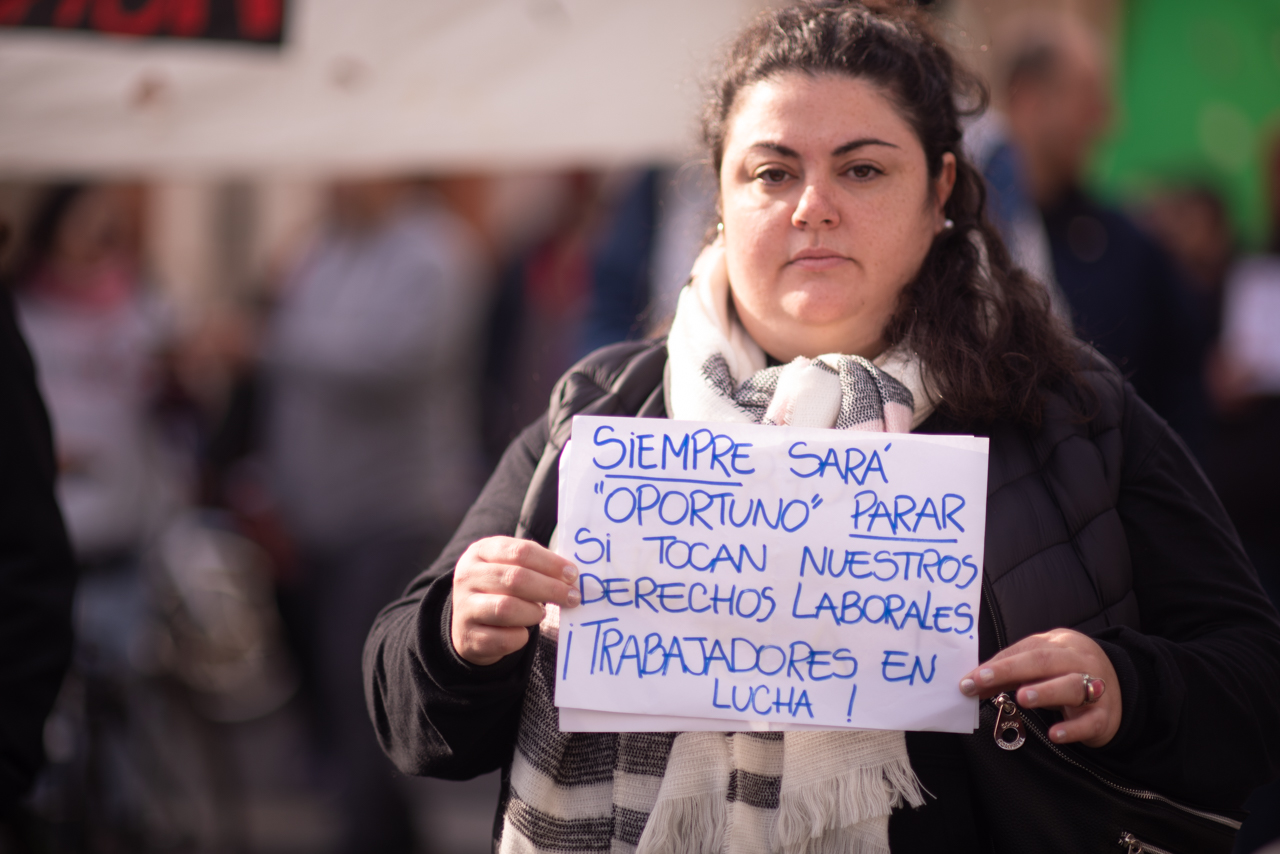 SiEMPRE SARÁ
"OPORTUNO" PARAR
Si TOCAN NUESTROS
DERECHOS LABORALES.
¡TRABAJADORES EN
LUCHA!